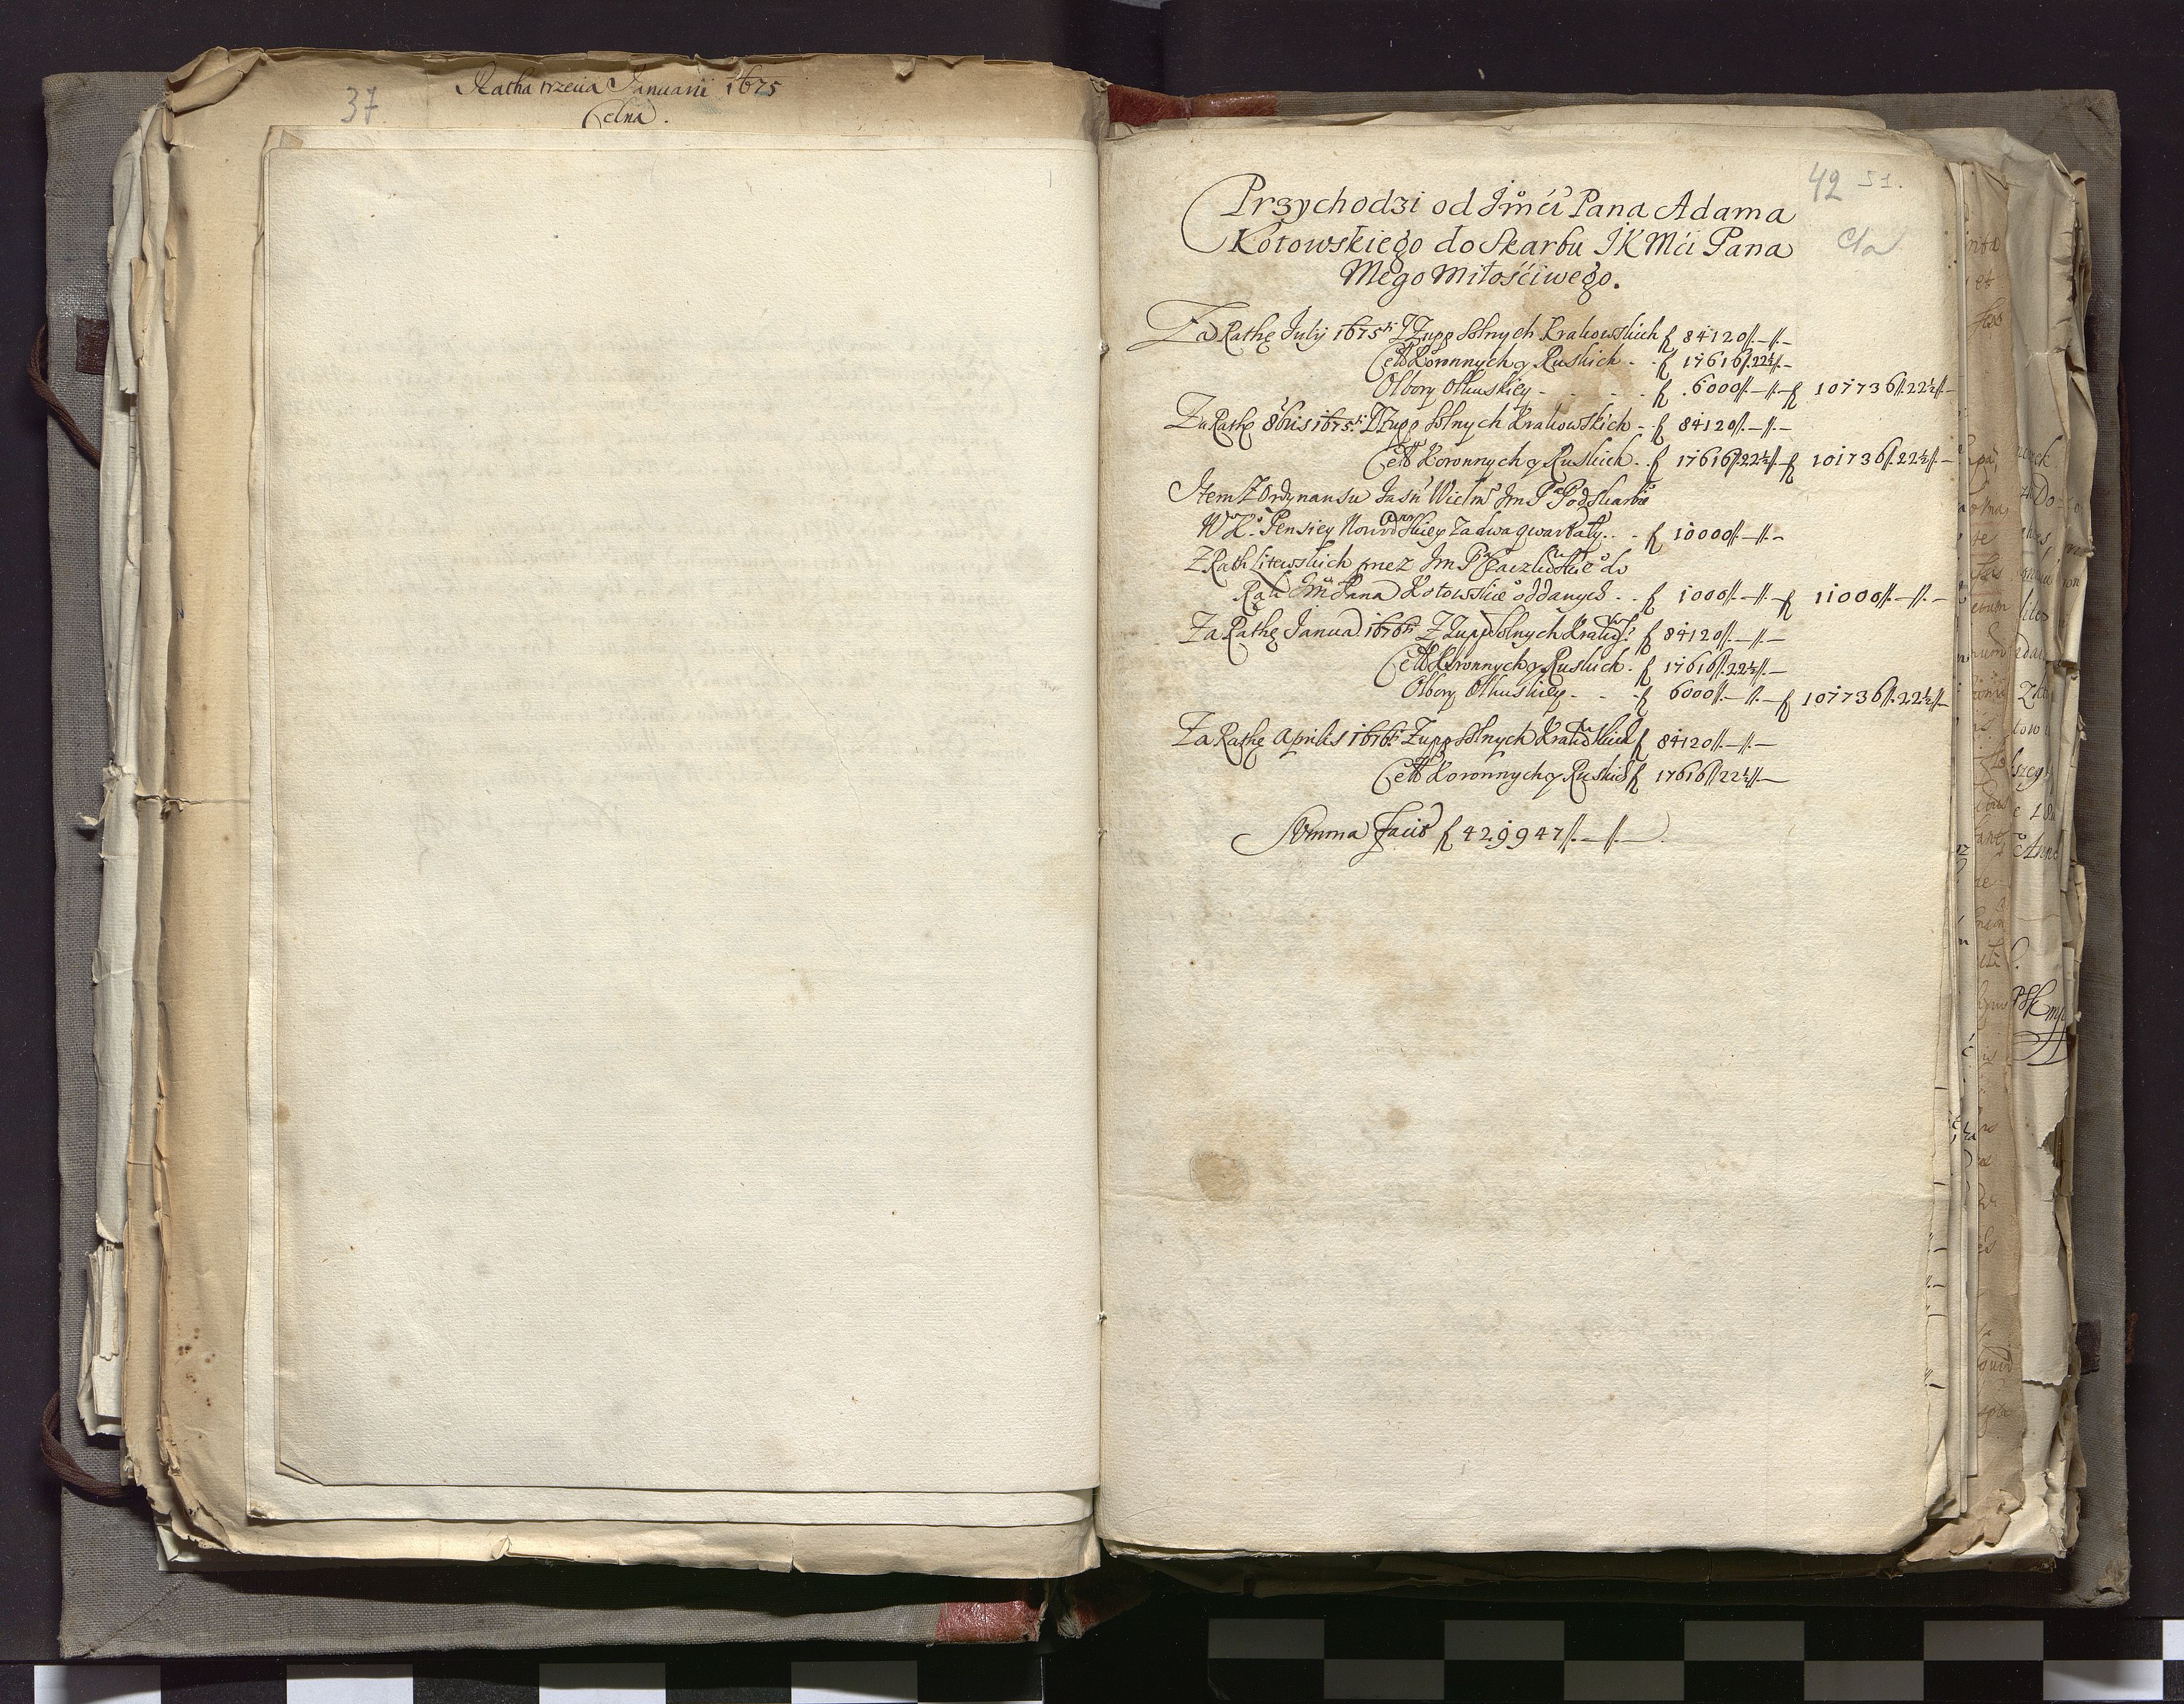 37.
Ratha trzecia Januarii 1675
Celna.
42 51.
Cła
Przychodzi od Jmći Pana Adama
Kotowskiego do Skarbu JKMći Pana
Mego Miłośćiwego.
Za Rathę July 1675 Z Zupp Solnych Krakowskich f 84120//.—//.—
Cełł Koronnych y Ruskich - - f 17616//.22½//.—
Olbory Olkuskiey - - - - f .6000//.—//.— f 107736//.22½//.—
Za Rathę 8bris 1675. Z Zupp Solnych Krakowskich - f 84120//.—//.—
Cełł Koronnych y Ruskich . . f 17616//.22½//.— f 101736//.22½//.—
Item Z Ordynansu Jasń Wielm Jm P Podskarbie
WK. Pensiey za dwa qwartały . . - f 10000//.—//.—
Z Rath Litewskich przez Jm P do
Rąk Jm Pana Kotowskie oddanych . . f 1000//.—//.— f 11000//.—//.—
Za Rathę Janua 1676 Z Zupp Solnych f 84120//.—//.—
Cełł Koronnych y Ruskich . f 17616//.22½//.—
Olbory Olkuskiey - - - f 6000//.—//.— f 107736//.22½//.—
Za Rathę Aprilis 1676 Zupp Solnych Krakowskich f 84120//.—//.—
Cełł Koronnych y Ruskich f 17616//.22½//.—
Summa facit f 429947//.—//.—